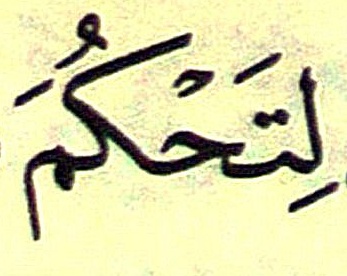 لِتَحْكُمَ